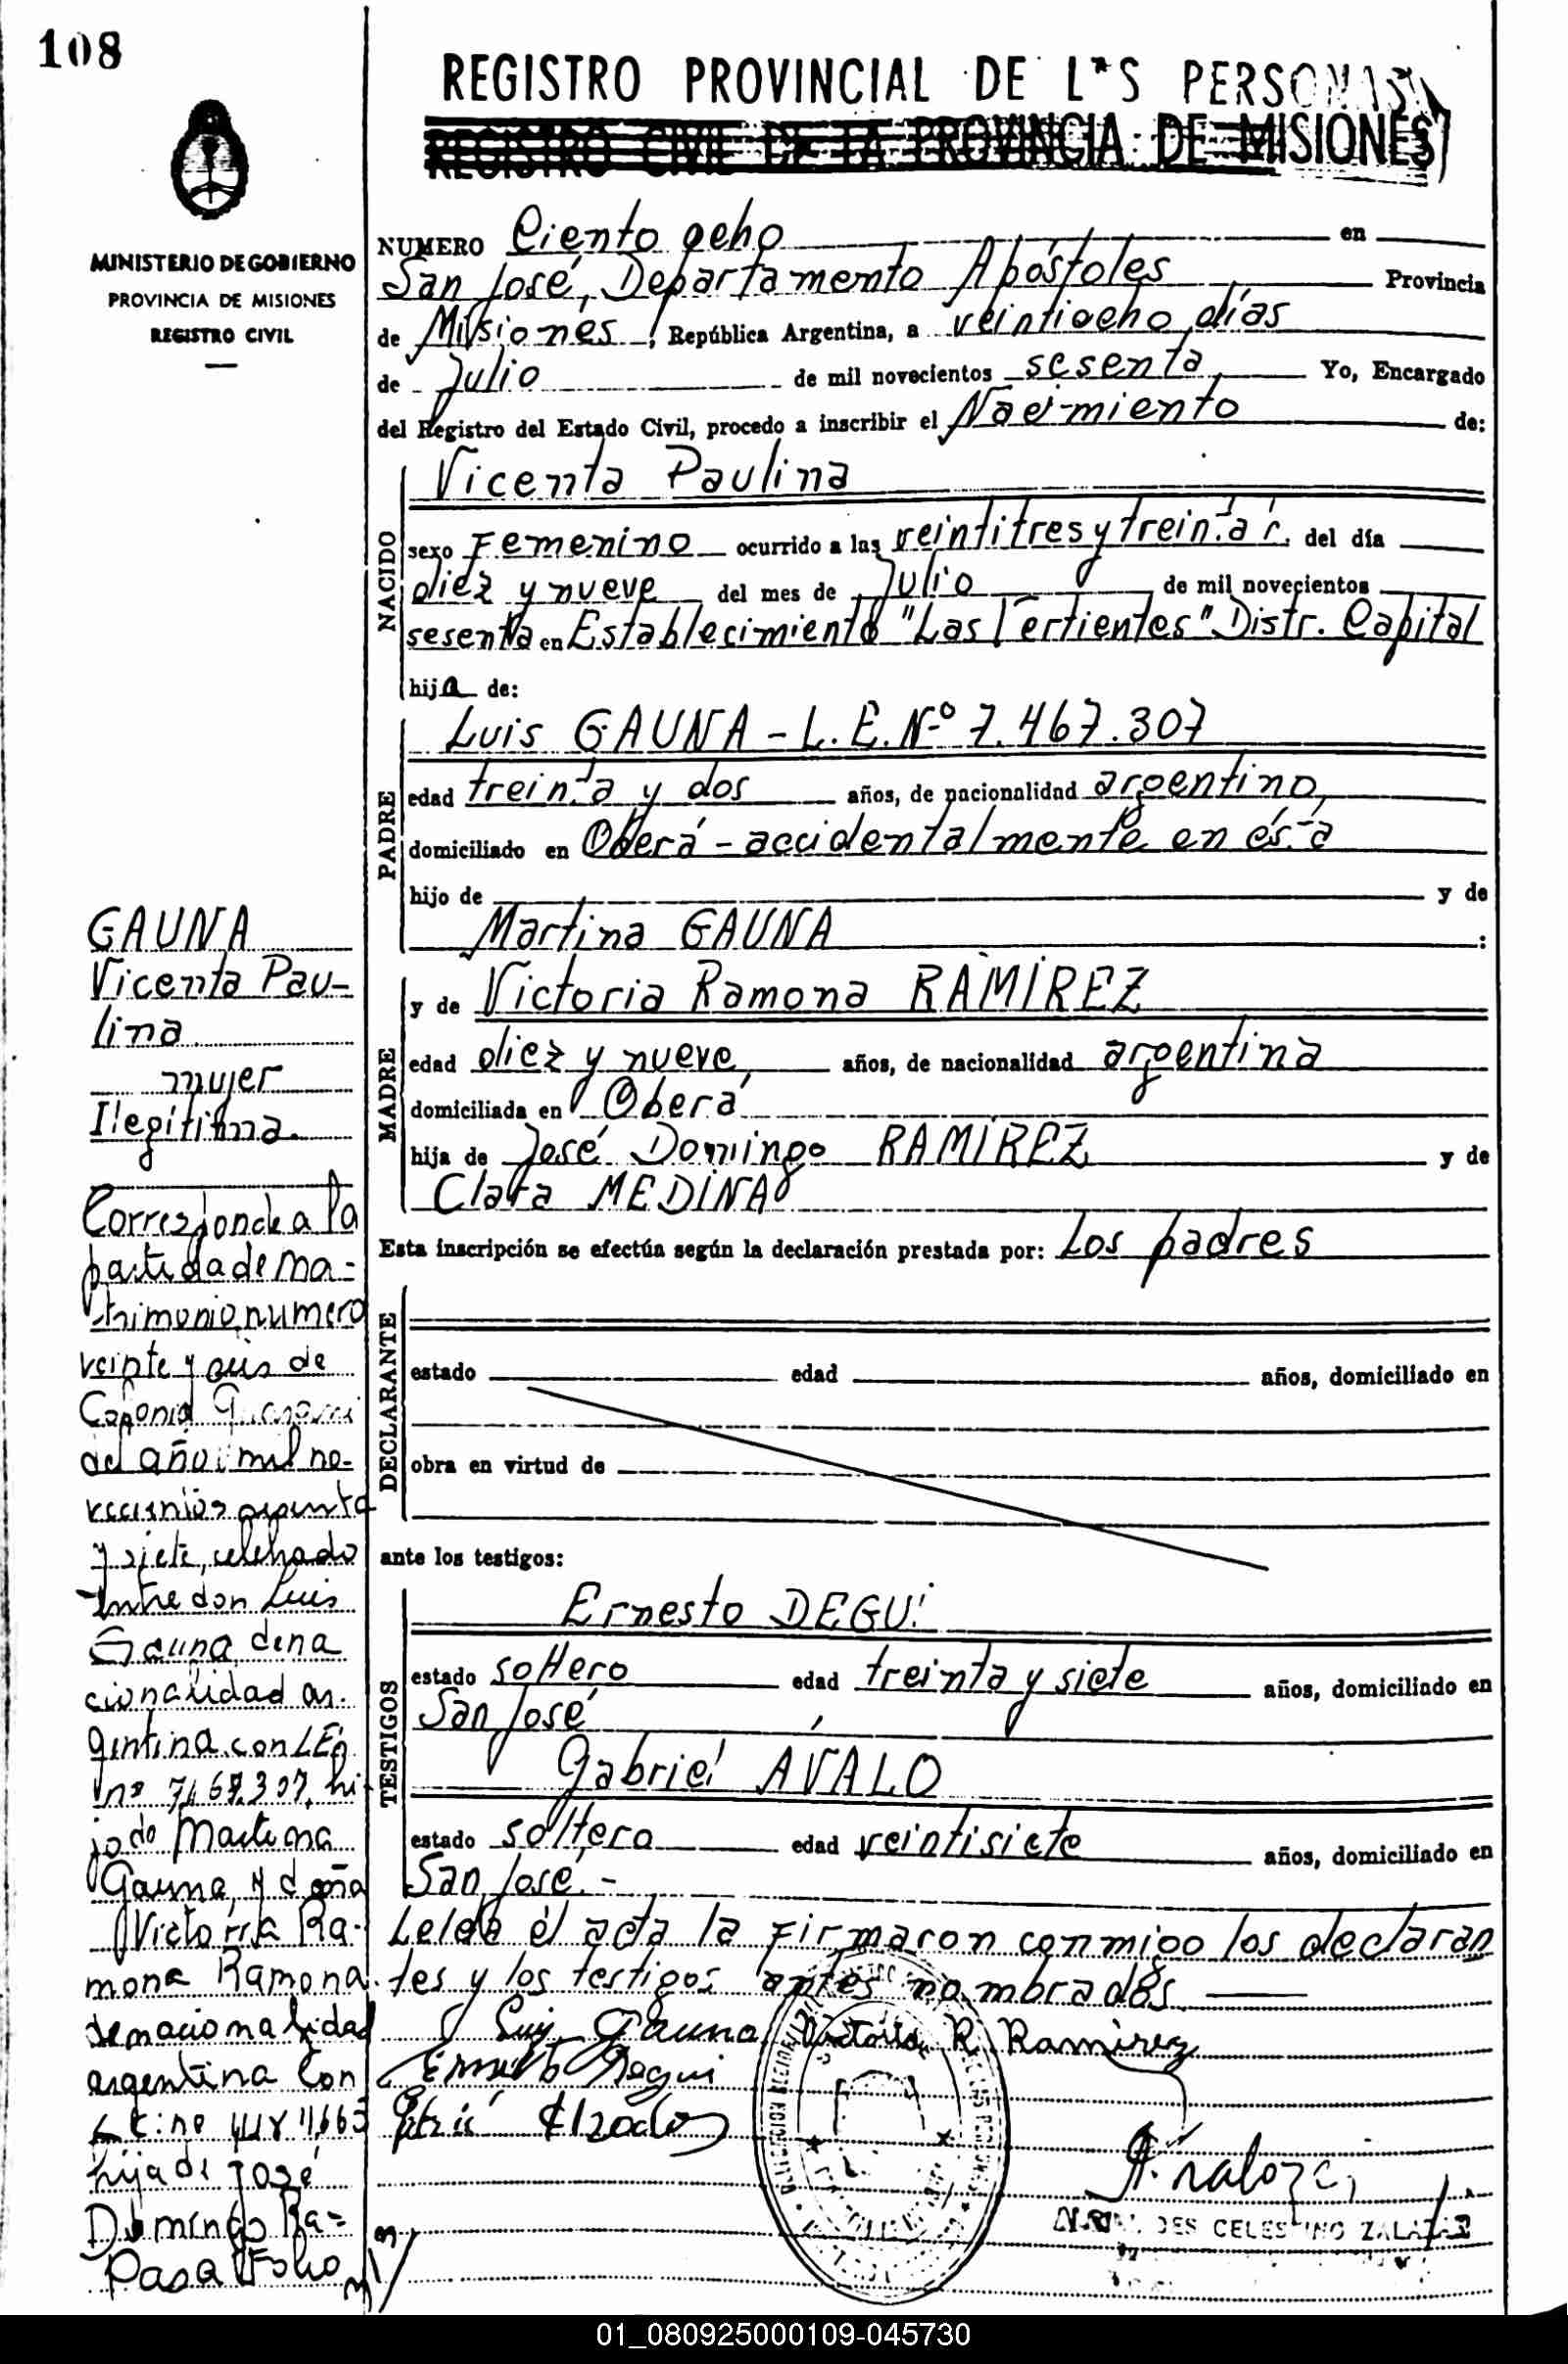 108
REGISTRO PROVINCIAL DE L*S PERSONAS
REGISTRO CIVIL DE LA PROVINCIA DE MISIONES
MINISTERIO DE GOBIERNO
PROVINCIA DE MISIONES
REGISTRO CIVIL
NUMERO Ciento ocho en
San José, Departamento Apóstoles Provincia
de Misiones, República Argentina, a veintiocho días
de Julio de mil novecientos sesenta, Yo, Encargado
del Registro del Estado Civil, procedo a inscribir el Nacimiento de:
NACIDO
Vicenta Paulina
sexo Femenino ocurrido a las veintitres y treinta del día
diez y nueve del mes de Julio de mil novecientos
sesenta en Establecimiento "Las Vertientes" Distr. Capital
hija de:
PADRE
Luis GAUNA - L.E.Nº 7.467.307
edad treinta y dos años, de nacionalidad argentino,
domiciliado en Oberá - accidentalmente en ésta
hijo de y de
Martina GAUNA :
MADRE
y de Victoria Ramona RAMÍREZ
edad diez y nueve años, de nacionalidad argentina
domiciliada en Oberá
hija de José Domingo RAMÍREZ y de
Clara MEDINA
Esta inscripción se efectúa según la declaración prestada por: Los padres
DECLARANTE
estado edad años, domiciliado en
obra en virtud de
ante los testigos:
TESTIGOS
Ernesto DEGUI
estado soltero edad treinta y siete años, domiciliado en
San José
Gabriel ÁVALO
estado soltero edad veintisiete años, domiciliado en
San José.-
Leída el acta la firmaron conmigo los declaran
tes y los testigos antes nombrados
Luis Gauna Victoria R. Ramirez
Ernesto Degui
CELESTINO ZALAZAR
GAUNA
Vicenta Pau-
lina
mujer
Ilegítima.
Corresponde a la
partida de ma-
trimonio numero
veinte y seis de
Colonia Guarani
del año mil no-
vecientos sesenta
y siete, celebrado
entre don Luis
Gauna de na
cionalidad ar-
gentina con LE
nº 7.467.307, hi
jo de Martina
Gauna, y doña
Victoria Ra-
mona Ramona
de nacionalidad
argentina con
hija de José
Domingo Ra-
Pasa Folio
01_080925000109-045730